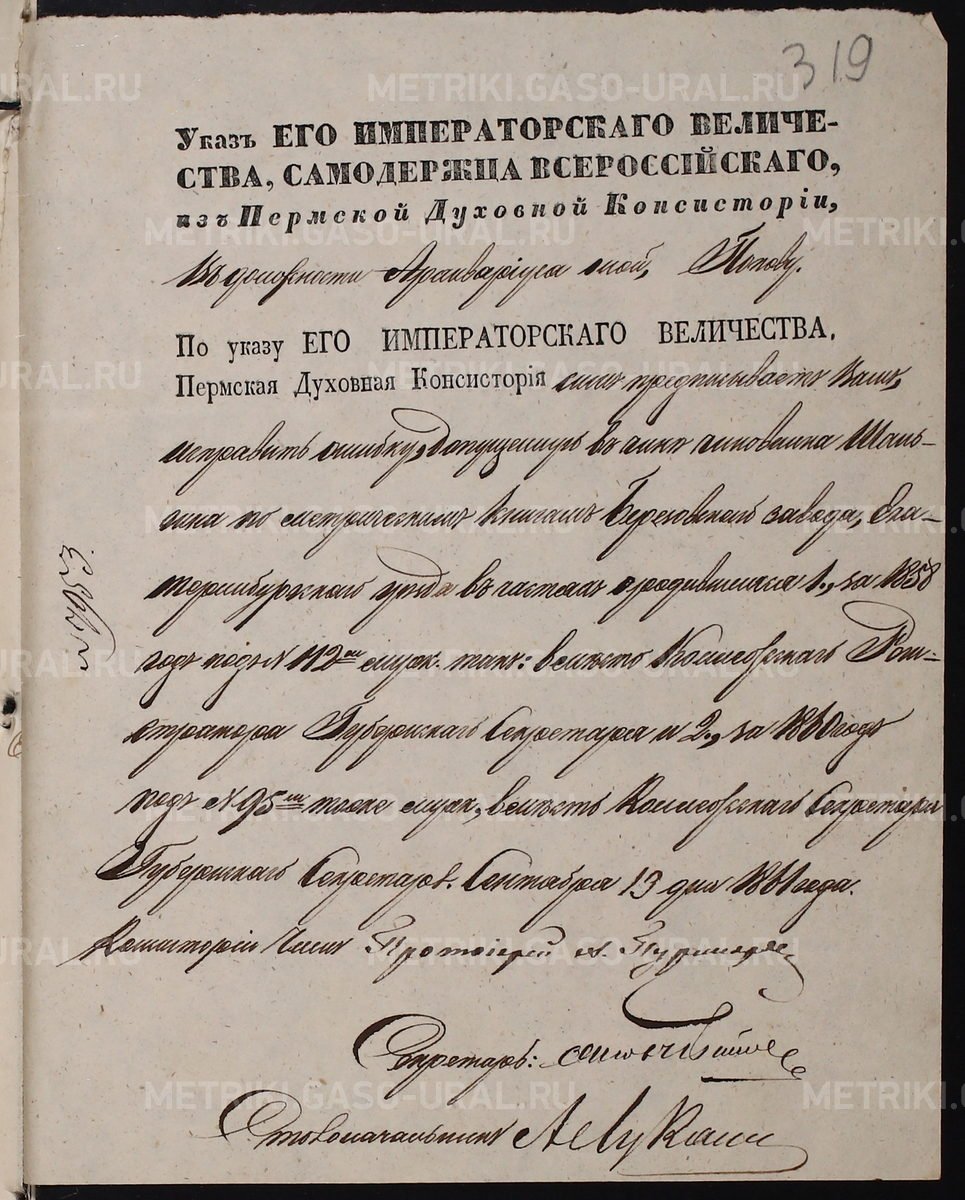 319
Указъ ЕГО ИМПЕРАТОРСКАГО ВЕЛИЧЕ-
СТВА, САМОДЕРЖЦА ВСЕРОССІЙСКАГО,
изъ Пермской Духовной Консисторіи,
въ должности Архиваріуса оной, Попову.
По указу ЕГО ИМПЕРАТОРСКАГО ВЕЛИЧЕСТВА,
Пермская Духовная Консисторія симъ предписываетъ Вамъ,
исправить ошибку, допущенную въ чинѣ чиновника
по метрическимъ книгамъ Березовскаго завода, Ека-
теринбургскаго уѣзда въ частяхъ о родившихся 1., за 1858
годъ подъ № 112 муж. такъ: вмѣсто Коллежскаго Реги-
стратора Губернскаго Секретаря и 2., за 1860 годъ
подъ № 95 тоже муж., вмѣсто Коллежскаго Секретаря
Губернскаго Секретаря. Сентября 13 дня 1861 года.
Консисторіи Членъ Протоіерей
Секретарь:
Столоначальникъ
№ 7953.
METRIKI.GASO-URAL.RU